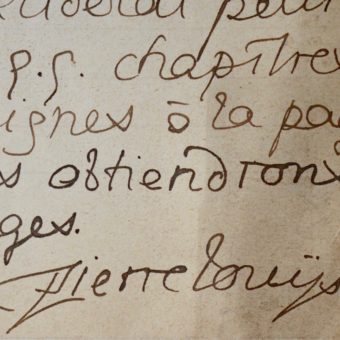 q.q. chapitres
ignes à la pa
s obtiendrons
ges.
Pierre Louÿs